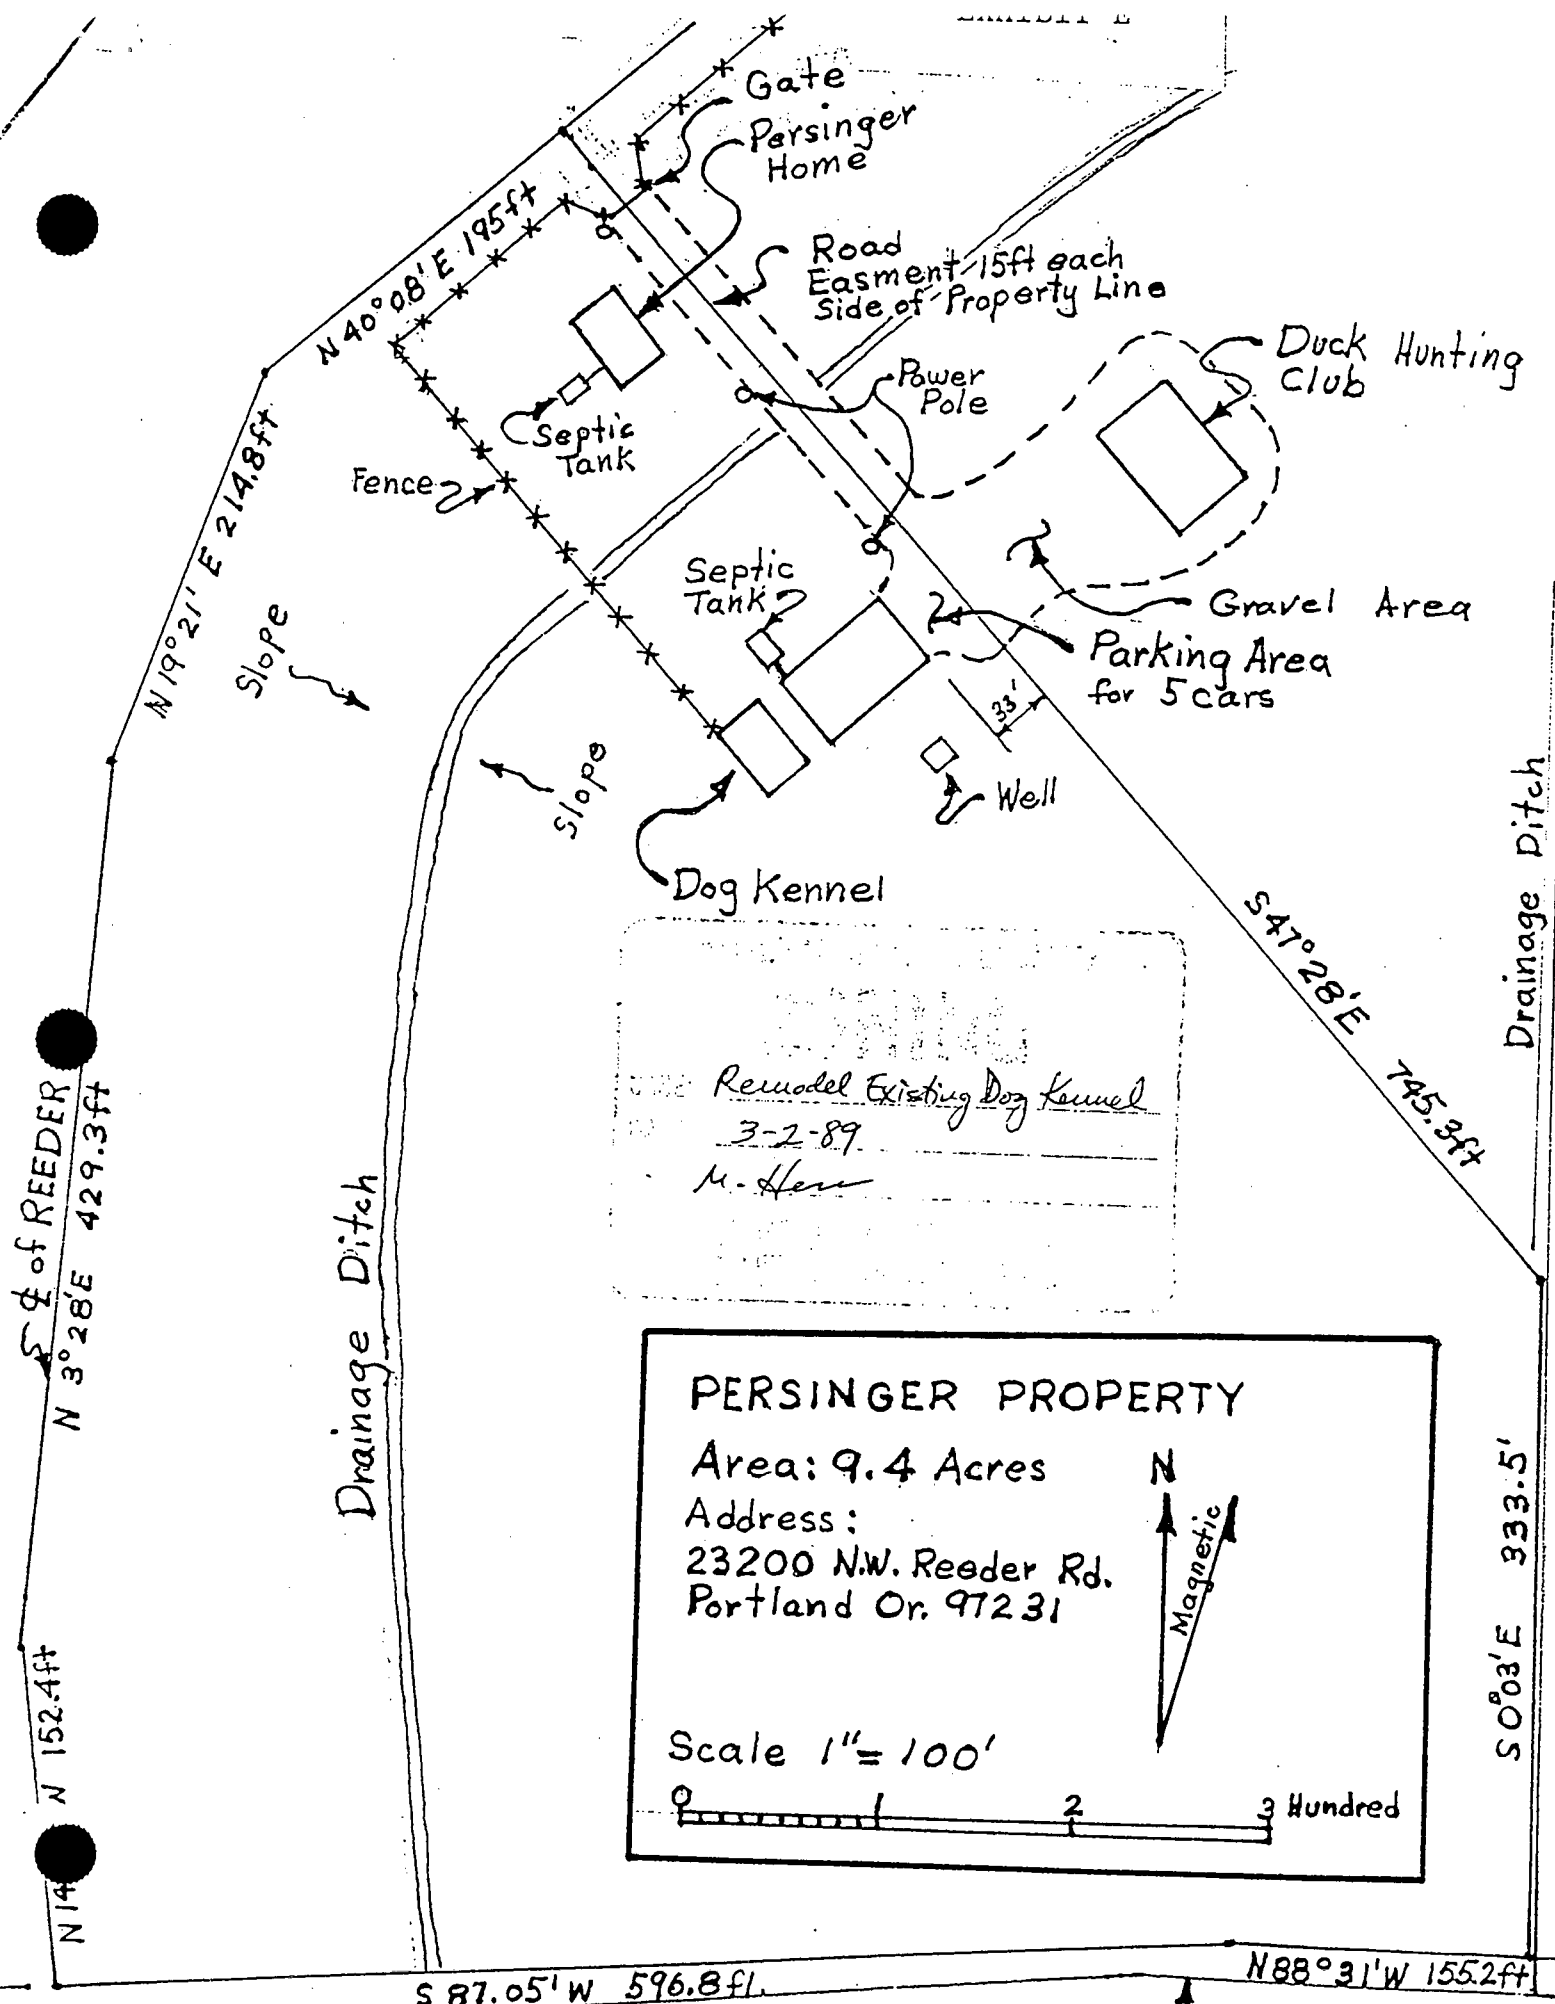 EXHIBIT E
Gate
Persinger
Home
N 40°08'E 195ft
Road
Easment 15ft each
Side of Property Line
Duck Hunting
Club
Power
Pole
Septic
Tank
Fence
N 19°21' E 214.8ft
Slope
Septic
Tank
Gravel Area
Parking Area
for 5 cars
33'
Slope
Well
Dog Kennel
Drainage Ditch
S47°28'E 745.3ft
Remodel Existing Dog Kennel
3-2-89
℄ of REEDER
N 3°28'E 429.3ft
Drainage Ditch
PERSINGER PROPERTY
Area: 9.4 Acres
Address:
23200 N.W. Reeder Rd.
Portland Or. 97231
N
Magnetic
Scale 1"=100'
0 1 2 3 Hundred
S 0°03'E 333.5'
N 152.4ft
N14
S 87.05'W 596.8ft.
N88°31'W 155.2ft